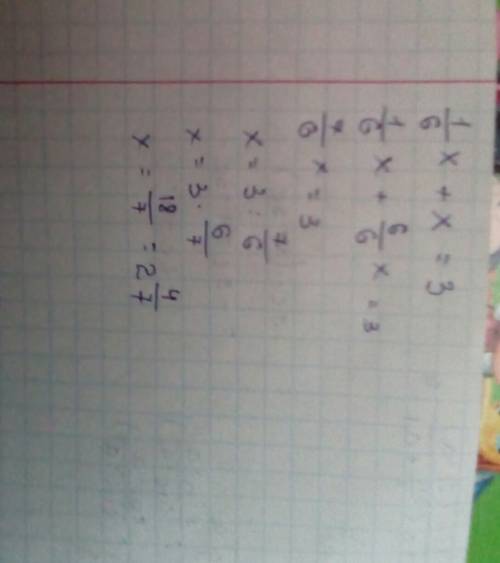 1/6 x + x = 3
1/6 x + 6/6 x = 3
7/6 x = 3
x = 3 : 7/6
x = 3 · 6/7
x = 18/7 = 2 4/7